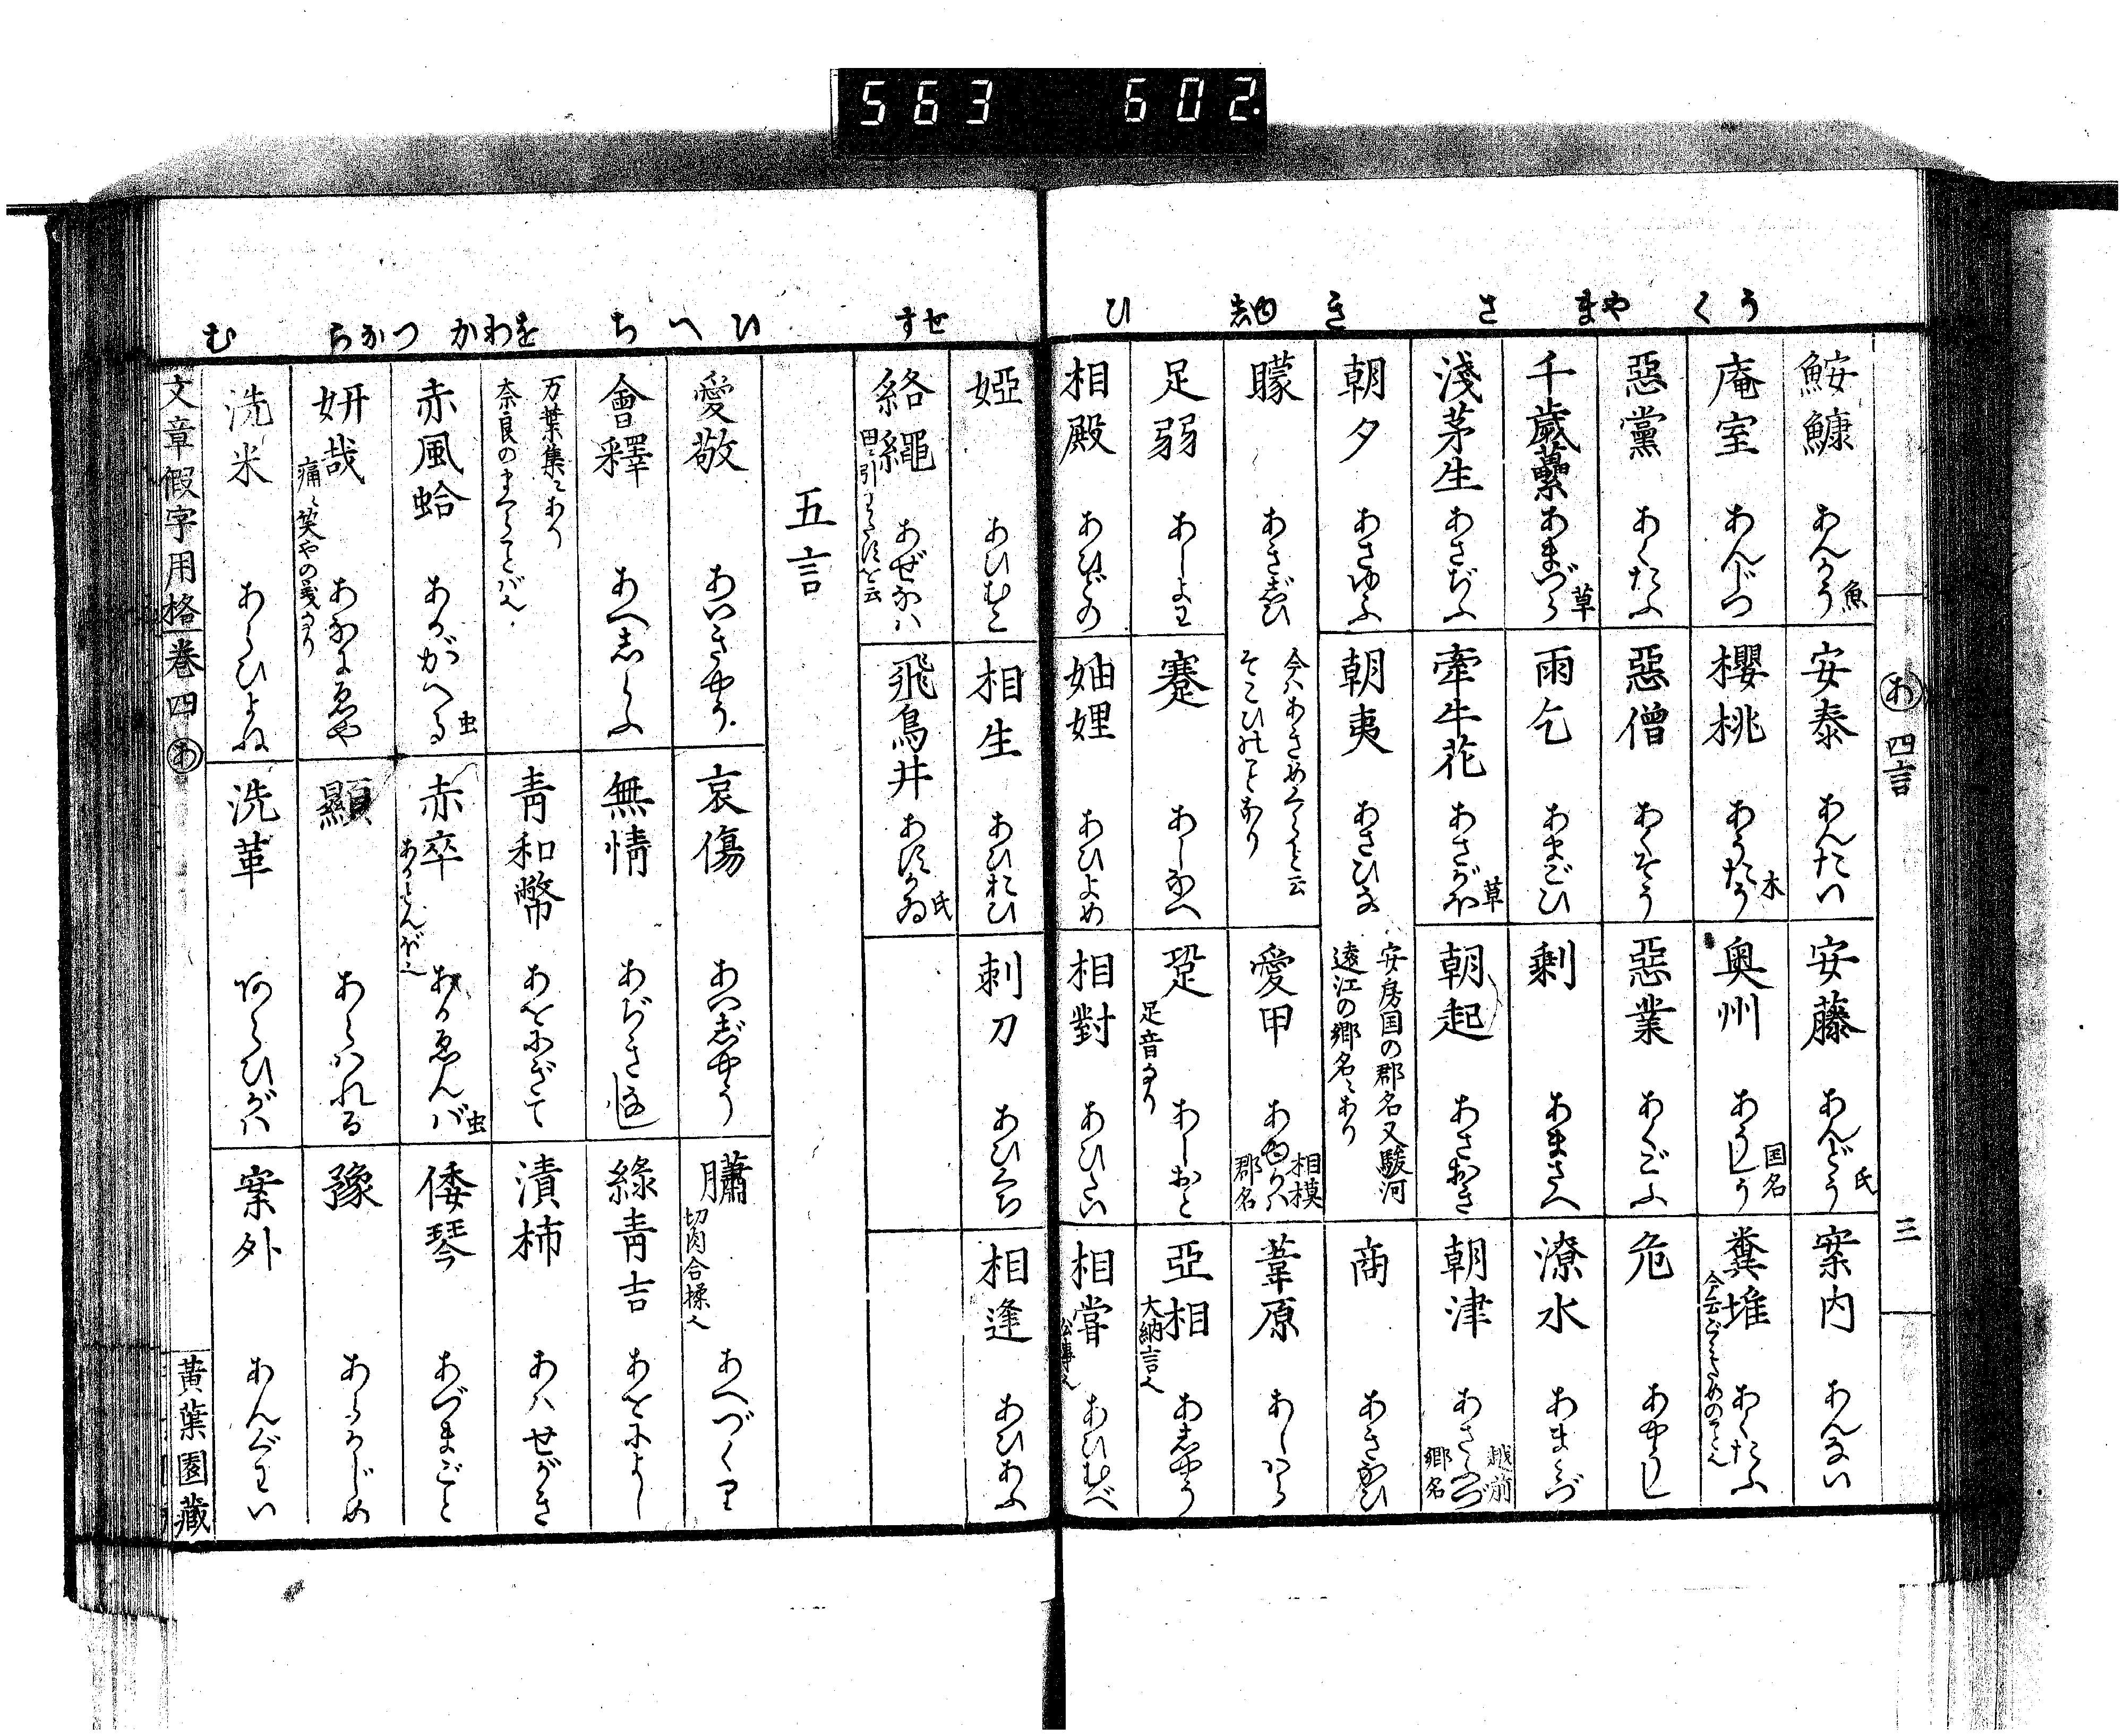 563 602
う く や ま さ き ゆ志 ひ
あ 四言 三
鮟鱇 あんかう 魚
安泰 あんたい
安藤 あんどう 氏
案内 あんない
庵室 あんじつ
櫻桃 あうたう 木
奥州 あうしう 国名
糞堆 あくたふ
惡黨 あくたふ
惡僧 あくそう
惡業 あくごふ
危 あやうし
千歳虆 あまづら 草
雨乞 あまごひ
剰 あまさへ
潦水 あまみづ
淺茅生 あさぢふ
牽牛花 あさがほ 草
朝起 あさおき
朝津 あさふづ 越前郷名
朝夕 あさゆふ
朝夷 あさひな 安房国の郡名又駿河
遠江の郷名ニあり
商 あきなひ
矇 あきじひ 今ハあきめくらと云
そこひのことなり
愛甲 あゆかハ 相模郡名
葦原 あしハら
足弱 あしよわ
蹇 あしなへ
跫 あしおと 足音なり
亞相 あしやう 大納言也
相殿 あひどの
妯娌 あひよめ
相對 あひたい
相嘗 あひむべ
すせ
婭 あひむこ
相生 あひおひ
刺刀 あひくち
相逢 あひあふ
絡繩 あぜなハ
飛鳥井 あすかゐ 氏
ひ へ ち をわか つ なら む
五言
愛敬 あいきやう
哀傷 あいしやう
膅 あへづくり 切肉合揉也
會釋 あへしらふ
無情 あぢきなし
緑青吉 あをによし
万葉集ニあり
奈良のまくらことば也
青和幣 あをにぎて
漬柿 あハせがき
赤風蛤 あかがへる 虫
赤卒 あかゑんば 虫
あかとんぼ也
倭琴 あづまごと
妍哉 あなにゑや
痛ミ笑やの義なり
顯 あらハれる
豫 あらかじめ
洗米 あらひよね
洗革 あらひがハ
案外 あんぐわい
文章假字用格 巻四 あ
黄葉園藏